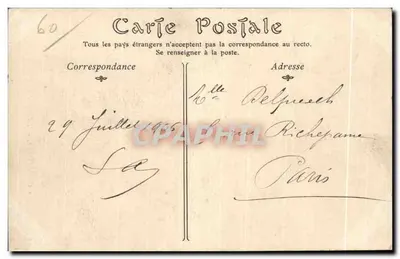 60
Carte Postale
Tous les pays étrangers n'acceptent pas la correspondance au recto.
Se renseigner à la poste.
Correspondance
Adresse
29 Juillet 1906
Mlle Delpuech
Richepanse
Paris
CPARHIL